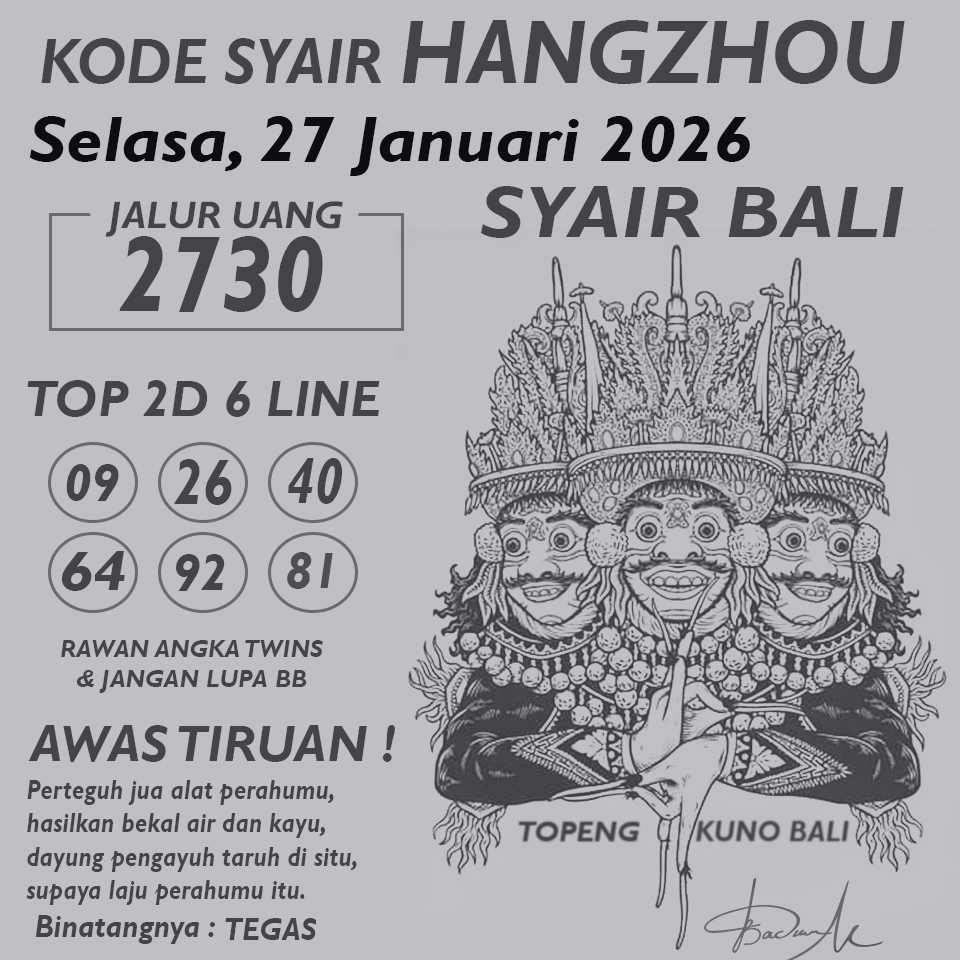 KODE SYAIR HANGZHOU
Selasa, 27 Januari 2026
SYAIR BALI
JALUR UANG
2730
TOP 2D 6 LINE
09 26 40
64 92 81
RAWAN ANGKA TWINS
& JANGAN LUPA BB
AWAS TIRUAN !
Perteguh jua alat perahumu,
hasilkan bekal air dan kayu,
dayung pengayuh taruh di situ,
supaya laju perahumu itu.
Binatangnya : TEGAS
TOPENG KUNO BALI